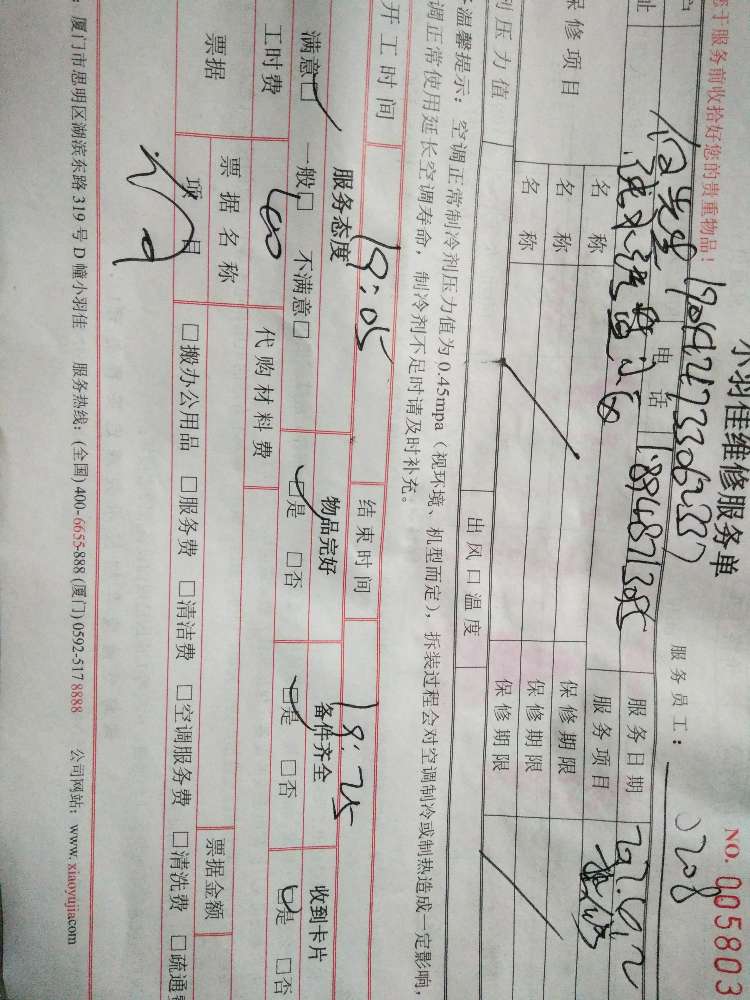 小羽佳维修服务单
NO. 005803
于服务前收拾好您的贵重物品！
服务员工： 0208
户 先生 电话 服务日期
址 服务项目
保修项目 名称 保修期限
名称 保修期限
名称 保修期限
剂压力值 出风口温度
温馨提示：空调正常制冷剂压力值为 0.45mpa（视环境、机型而定），拆装过程会对空调制冷或制热造成一定影响，
调正常使用延长空调寿命，制冷剂不足时请及时补充。
开工时间 19:05 结束时间 19:25
服务态度 物品完好 备件齐全 收到卡片
满意□ 一般□ 不满意□ □是 □否 □是 □否 □是 □否
工时费 100 代购材料费
票据 票据名称 票据金额
项目 □搬办公用品 □服务费 □清洁费 □空调服务费 □清洗费 □疏通
：厦门市思明区湖滨东路 319 号 D 幢小羽佳 服务热线：(全国) 400-6655-888 (厦门) 0592-517 8888 公司网站：www.xiaoyujiacom